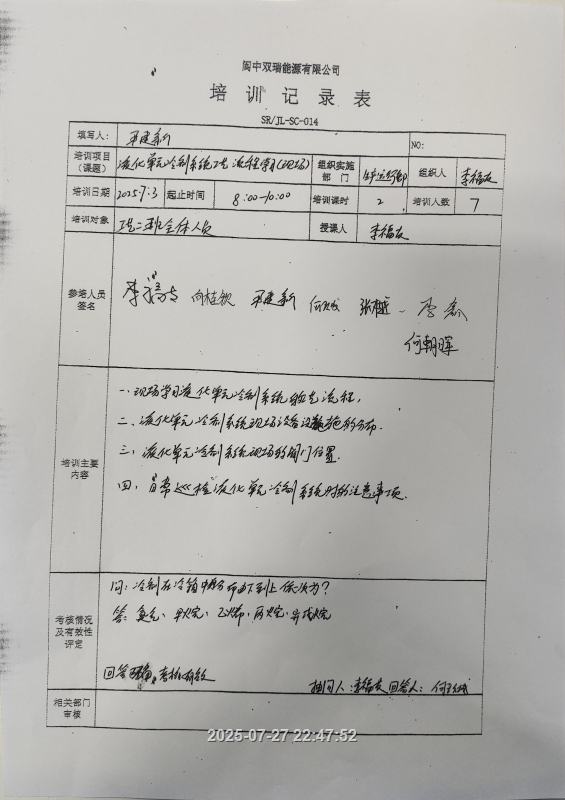 阆中双瑞能源有限公司
培训记录表
SR/JL-SC-014
填写人： NO:
培训项目（课题） 液化单元冷剂系统工艺流程学习(现场) 组织实施部门 生产运行部 组织人 李福友
培训日期 2025.7.3 起止时间 8:00-10:00 培训课时 2 培训人数 7
培训对象 工艺二班全体人员 授课人 李福友
参培人员签名 李福友 向桂钦 张越 李磊
何朝晖
培训主要内容
一、现场学习液化单元冷剂系统 流程,
二、液化单元冷剂系统现场设备设施的分布.
三、液化单元冷剂系统现场的阀门位置.
四、日常巡检液化单元冷剂系统时的注意事项.
考核情况及有效性评定
问：冷剂在冷箱中 由下到上依次为？
答：氮气、甲烷、乙烯、丙烷、异戊烷
回答正确,考核有效
抽问人：李福友 回答人：
相关部门审核
2025-07-27 22:47:52